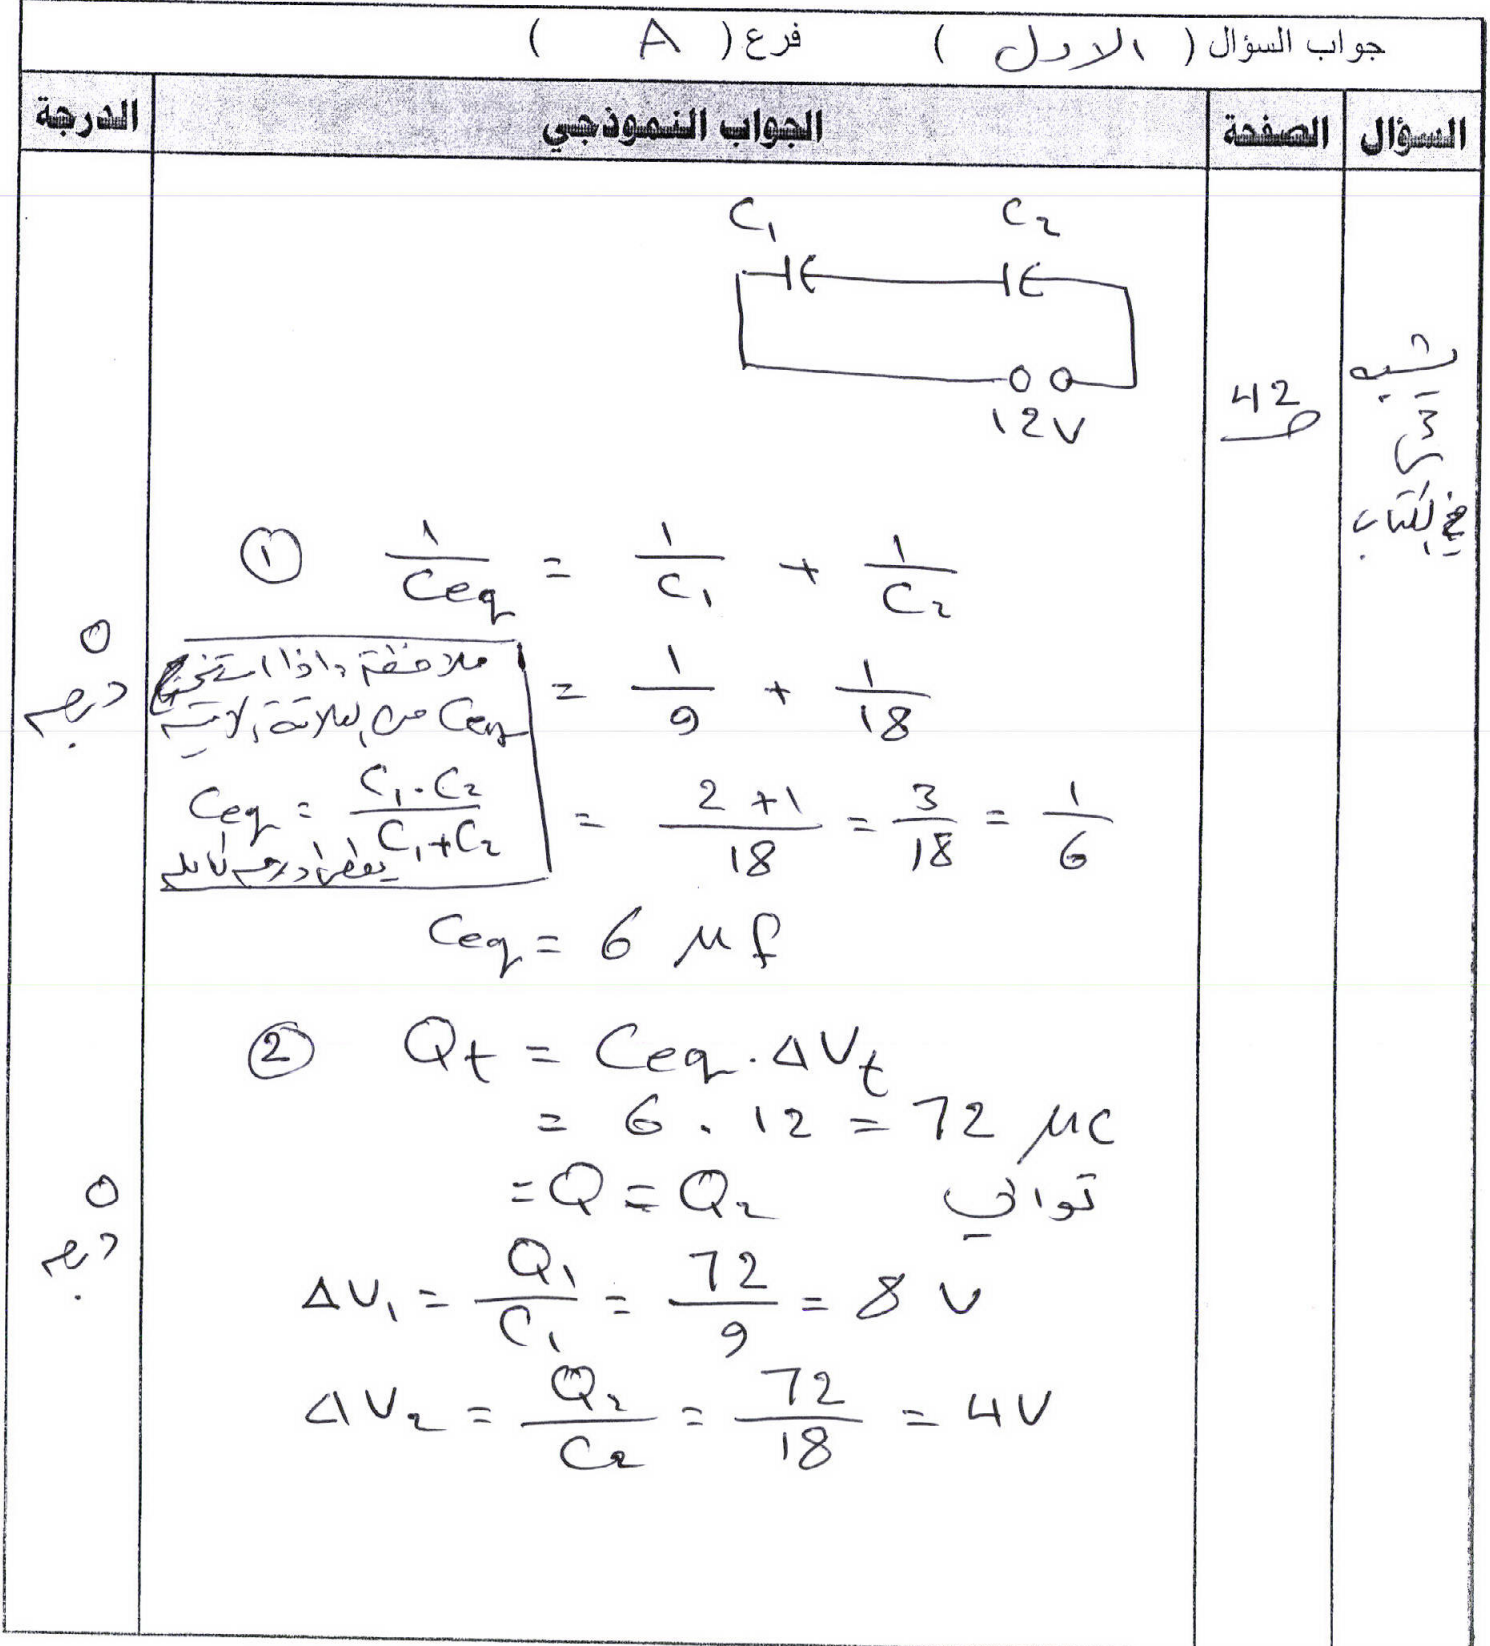 جواب السؤال ( الاول ) فرع ( A )
السؤال الصفحة الجواب النموذجي الدرجة
C₁ C₂
12V
شبيه
س3
في الكتاب
42
ص
① 1/Ceq = 1/C₁ + 1/C₂
= 1/9 + 1/18
= 2+1/18 = 3/18 = 1/6
Ceq = 6 μf
٥
درجة
ملاحظة: اذا استخرج
Ceq من العلاقة الاتية
Ceq = C₁.C₂/C₁+C₂
يعطى درجة كاملة
② Qt = Ceq . ΔVt
= 6 . 12 = 72 μc
= Q = Q₂ توالي
ΔV₁ = Q₁/C₁ = 72/9 = 8 V
ΔV₂ = Q₂/C₂ = 72/18 = 4V
٥
درجة